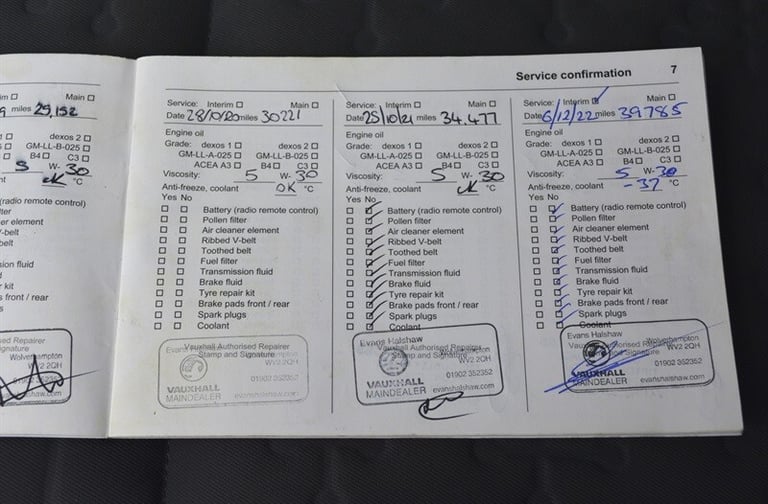 Service confirmation 7
im Main
9 miles 29,152
1 dexos 2
GM-LL-B-025
B4 C3
5 W- 30
nt OK °C
(radio remote control)
lter
er element
V-belt
belt
sion fluid
d
ir kit
s front / rear
s
sed Repairer
ignature
Wolverhampton
WV2 2QH
01902 352352
shalshaw.com
Service: Interim Main
Date 28/10/20 miles 30221
Engine oil
Grade: dexos 1 dexos 2
GM-LL-A-025 GM-LL-B-025
ACEA A3 B4 C3
Viscosity: 5 W- 30
Anti-freeze, coolant OK °C
Yes No
Battery (radio remote control)
Pollen filter
Air cleaner element
Ribbed V-belt
Toothed belt
Fuel filter
Transmission fluid
Brake fluid
Tyre repair kit
Brake pads front / rear
Spark plugs
Coolant
Vauxhall Authorised Repairer
Stamp and Signature
WV2 2QH
01902 352352
VAUXHALL
MAINDEALER
evanshalshaw.com
Service: Interim Main
Date 25/10/21 miles 34,477
Engine oil
Grade: dexos 1 dexos 2
GM-LL-A-025 GM-LL-B-025
ACEA A3 B4 C3
Viscosity: 5 W- 30
Anti-freeze, coolant OK °C
Yes No
Battery (radio remote control)
Pollen filter
Air cleaner element
Ribbed V-belt
Toothed belt
Fuel filter
Transmission fluid
Brake fluid
Tyre repair kit
Brake pads front / rear
Spark plugs
Coolant
Evans Halshaw
Vauxhall Authorised Repairer
Stamp and Signature
WV2 2QH
01902 352352
VAUXHALL
MAINDEALER
evanshalshaw.com
Service: Interim Main
Date 6/12/22 miles 39785
Engine oil
Grade: dexos 1 dexos 2
GM-LL-A-025 GM-LL-B-025
ACEA A3 B4 C3
Viscosity: 5 W- 30
Anti-freeze, coolant -37 °C
Yes No
Battery (radio remote control)
Pollen filter
Air cleaner element
Ribbed V-belt
Toothed belt
Fuel filter
Transmission fluid
Brake fluid
Tyre repair kit
Brake pads front / rear
Spark plugs
Coolant
Evans Halshaw
Vauxhall Authorised Repairer
Wolverhampton
Stamp and Signature
WV2 2QH
01902 352352
VAUXHALL
MAINDEALER
evanshalshaw.com